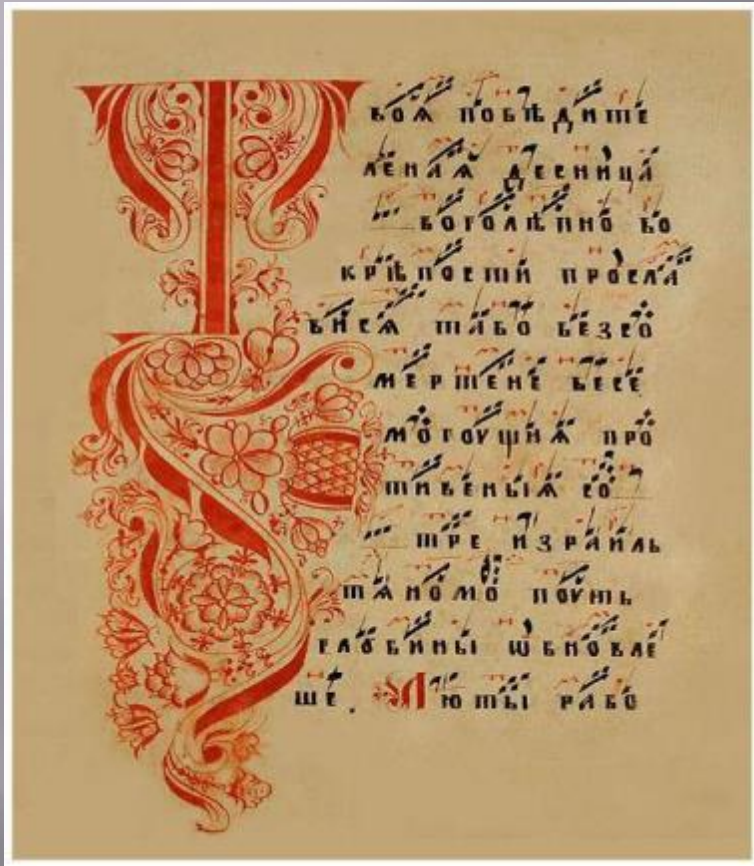 Твоѧ побѣдите
ленаѧ десница
боголѣпно во
крѣпости просла
висѧ табо безсо
мертене весе
могоущиѧ про
тивеныѧ со
тре израиль
тѧномо поуть
глобины ѡбновле
ше. Люты рабо